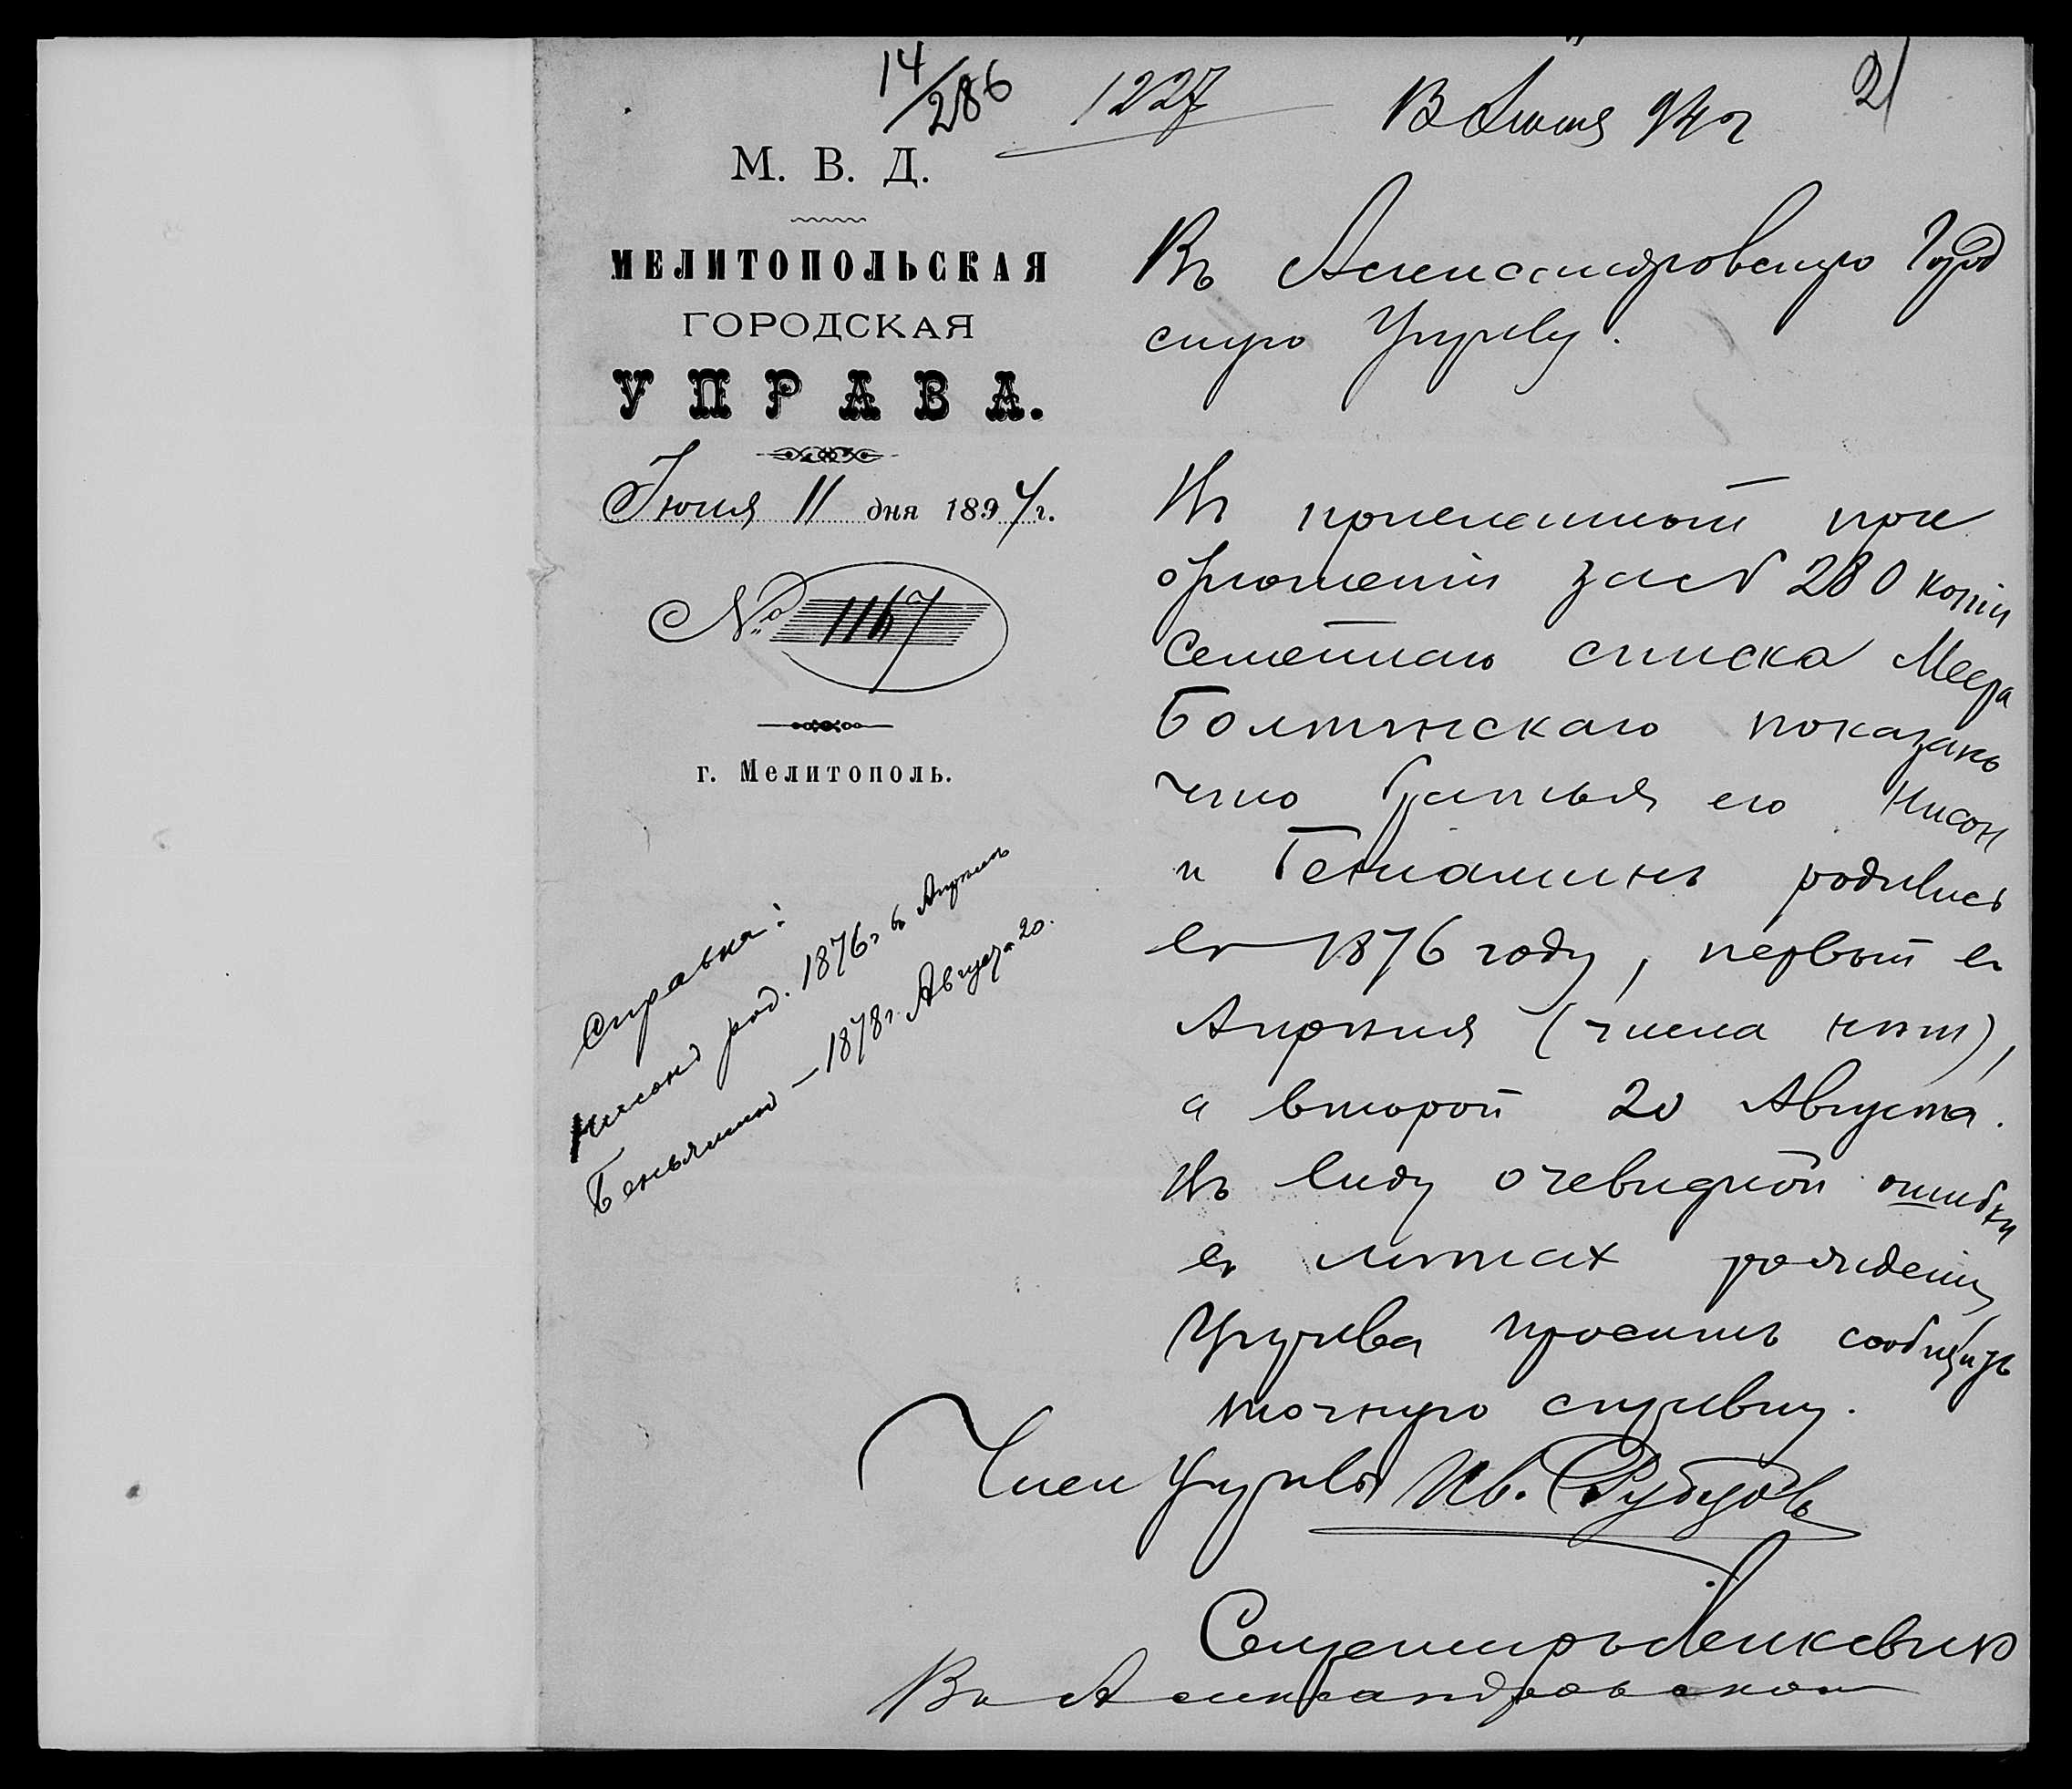 14/286
1227
13 Июня 94 г
21
М. В. Д.
МЕЛИТОПОЛЬСКАЯ
ГОРОДСКАЯ
УПРАВА.
Июня 11 дня 1894 г.
№ 1167
г. Мелитополь.
Въ Александровскую Город
скую Управу.
Въ присланной при
отношеніи за № 280 копіи
семейнаго списка Меера
Болтянскаго показано
что братья его Нисон
и Бениаминъ родились
въ 1876 году, первый въ
Апрѣля (числа нѣт),
а второй 20 Августа.
Въ виду очевидной ошибки
въ лѣтах рожденія
Управа просить сообщить
точную справку.
Член Управы Ив.
Секретарь
Въ Александровскою
Справка:
Нисонъ род. 1876 г. въ Апрѣлѣ
Беньяминъ — 1878 г. Августа 20.